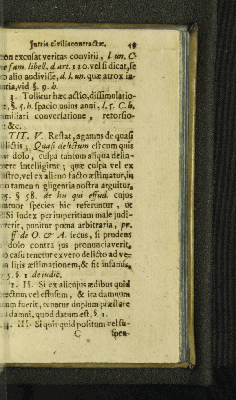 Iniuria civiliscontractæ. 49
non excusat veritas convitii, l. un. C.
de fam. libell. d. art. 110. vel si dicat, se
alio audivisse, d. l. un. quæ atrox in-
uria, vid §. 9. h.
3. Tollitur hæc actio, dissimulatio-
e, §. h. spacio unius anni, l. 5. C. h.
miliari conversatione, retorsio-
&c.
TIT. V. Restat, agamus de quasi
lictis; Quasi delictum est cum quis
dolo, culpa tantum aliqua delin-
ere intelligitur; quæ culpa vel ex
vel ex alieno facto æstimatur, in
tamen negligentia nostra arguitur,
§. 58. de his qui effud. cujus
species hic referuntur, ut
Si Judex per imperitiam male judi-
punitur pœna arbitraria, pr.
ff. de O. & A. secus, si prudens
dolo contra jus pronunciaverit,
casu tenetur ex vero delicto ad ve-
litis æstimationem, & fit infamis,
5. §. 1. de judic.
2. II. Si ex alienjus ædibus quid
ectum vel effusum, & ita damnum
um fuerit, tenetur duplum præstare
damni, quod datum est, §. 1.
III. Si quis quid positum vel su-
C spen-